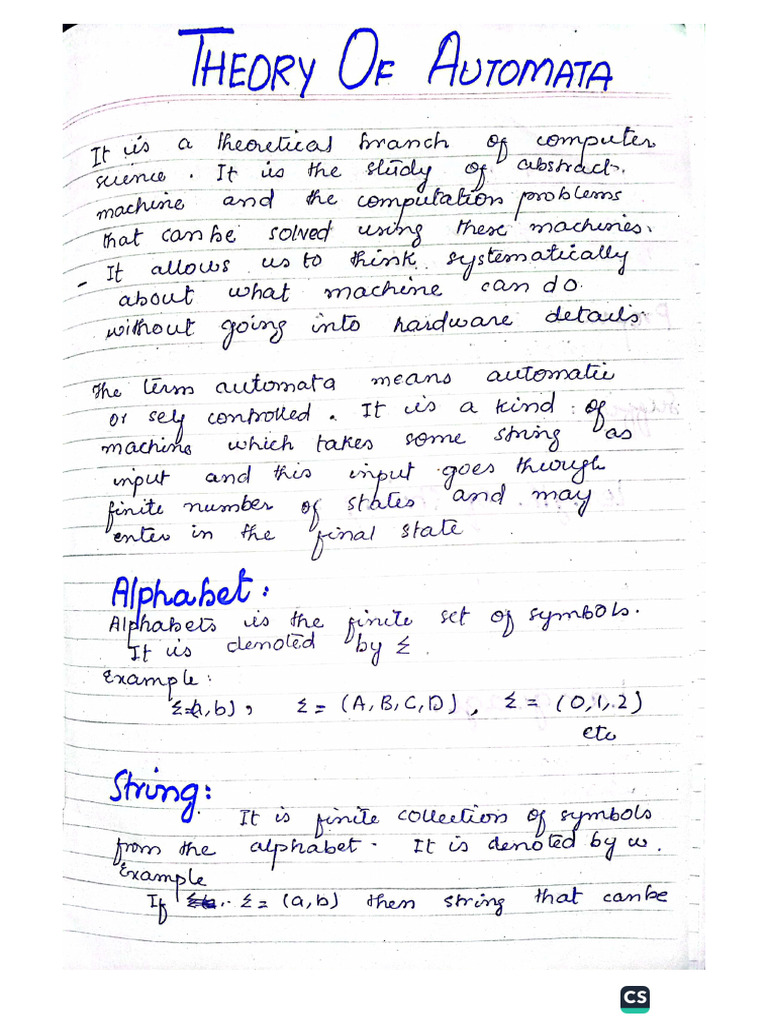 THEORY OF AUTOMATA
It is a theoretical branch of computer
science. It is the study of abstract.
machine and the computation problems
that can be solved using these machines.
- It allows us to think systematically
about what machine can do.
without going into hardware details.
The term automata means automatic
or self controlled. It is a kind of
machine which takes some string as
input and this input goes through
finite number of states and may
enter in the final state
Alphabet:
Alphabets is the finite set of symbols.
It is denoted by Σ.
Example:
Σ=(a,b), Σ = (A, B, C, D), Σ = (0,1,2)
etc
String:
It is finite collection of symbols
from the alphabet. It is denoted by w.
Example
If Σ = (a,b) then string that can be
CS